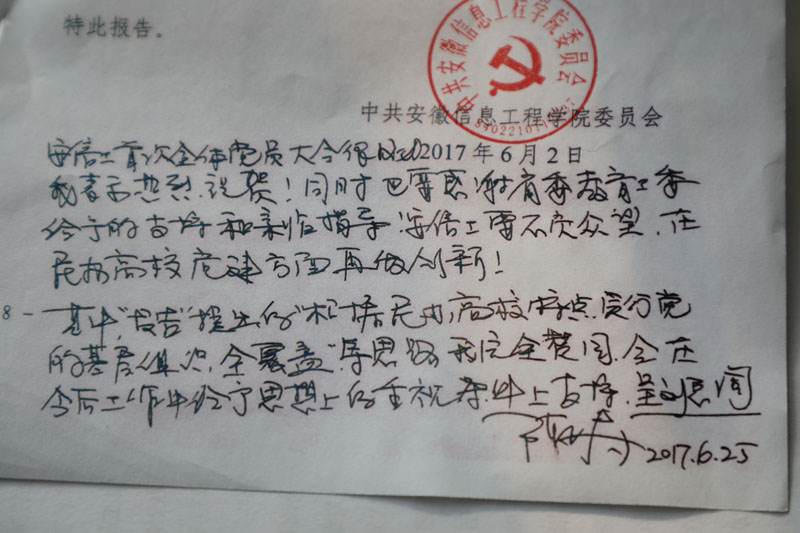 特此报告。
中共安徽信息工程学院委员会
中共安徽信息工程学院委员会
2017年6月2日
安信工首次全体党员大会得
我表示热烈祝贺！同时也要感谢省委教育工委
给予的支持和亲临指导。安信工要不负众望，在
民办高校党建方面再做创新！
8 -
其中，"报告"提出的"根据民办高校特点，实行党
的基层组织全覆盖"等思路我完全赞同，会在
今后工作中给予思想上的重视条件上支持。呈 阅
2017.6.25